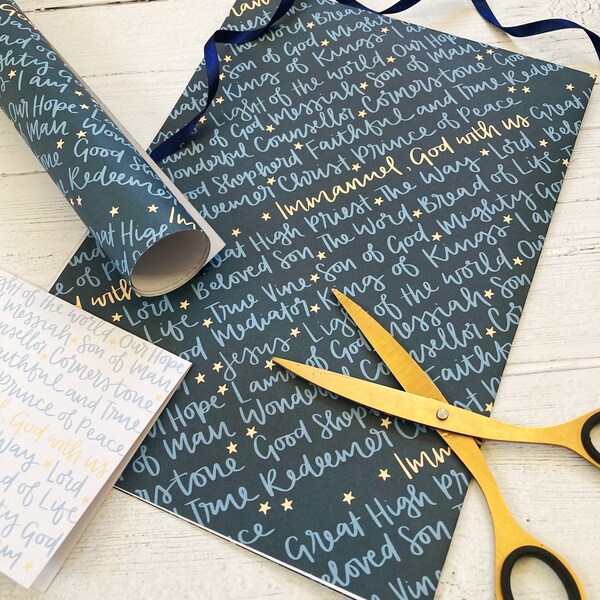 I am
Our Hope
of Man
Good
Redeemer
Great High
of Peace
King
Son of God
of the world
Son of Man
Kings
Our Hope
Light of the world
Cornerstone
Lamb of God Messiah
and True Redeemer
Wonderful Counsellor Faithful
Good Shepherd
Christ Prince of Peace
Great
Redeemer
Immanuel, God with us
Lord
Great High Priest The Way
Bread of Life
Beloved Son The Word
Mighty God
I am
Lord
True Vine Son of God
of Kings
Our
Life
God Mediator King
of the world
Jesus Light
Messiah
Son
Hope I am
of God
Cornerstone
of Man Wonderful
Counsellor
Faithful
Good
Cornerstone
Christ
and True Redeemer
Immanuel
Great High Priest
Beloved Son
True Vine
God with
light of the world
Our Hope
Messiah
Son of Man
Cornerstone
Faithful and True
Prince of Peace
God with us
Way
Lord
Bread of Life
Mighty God
am